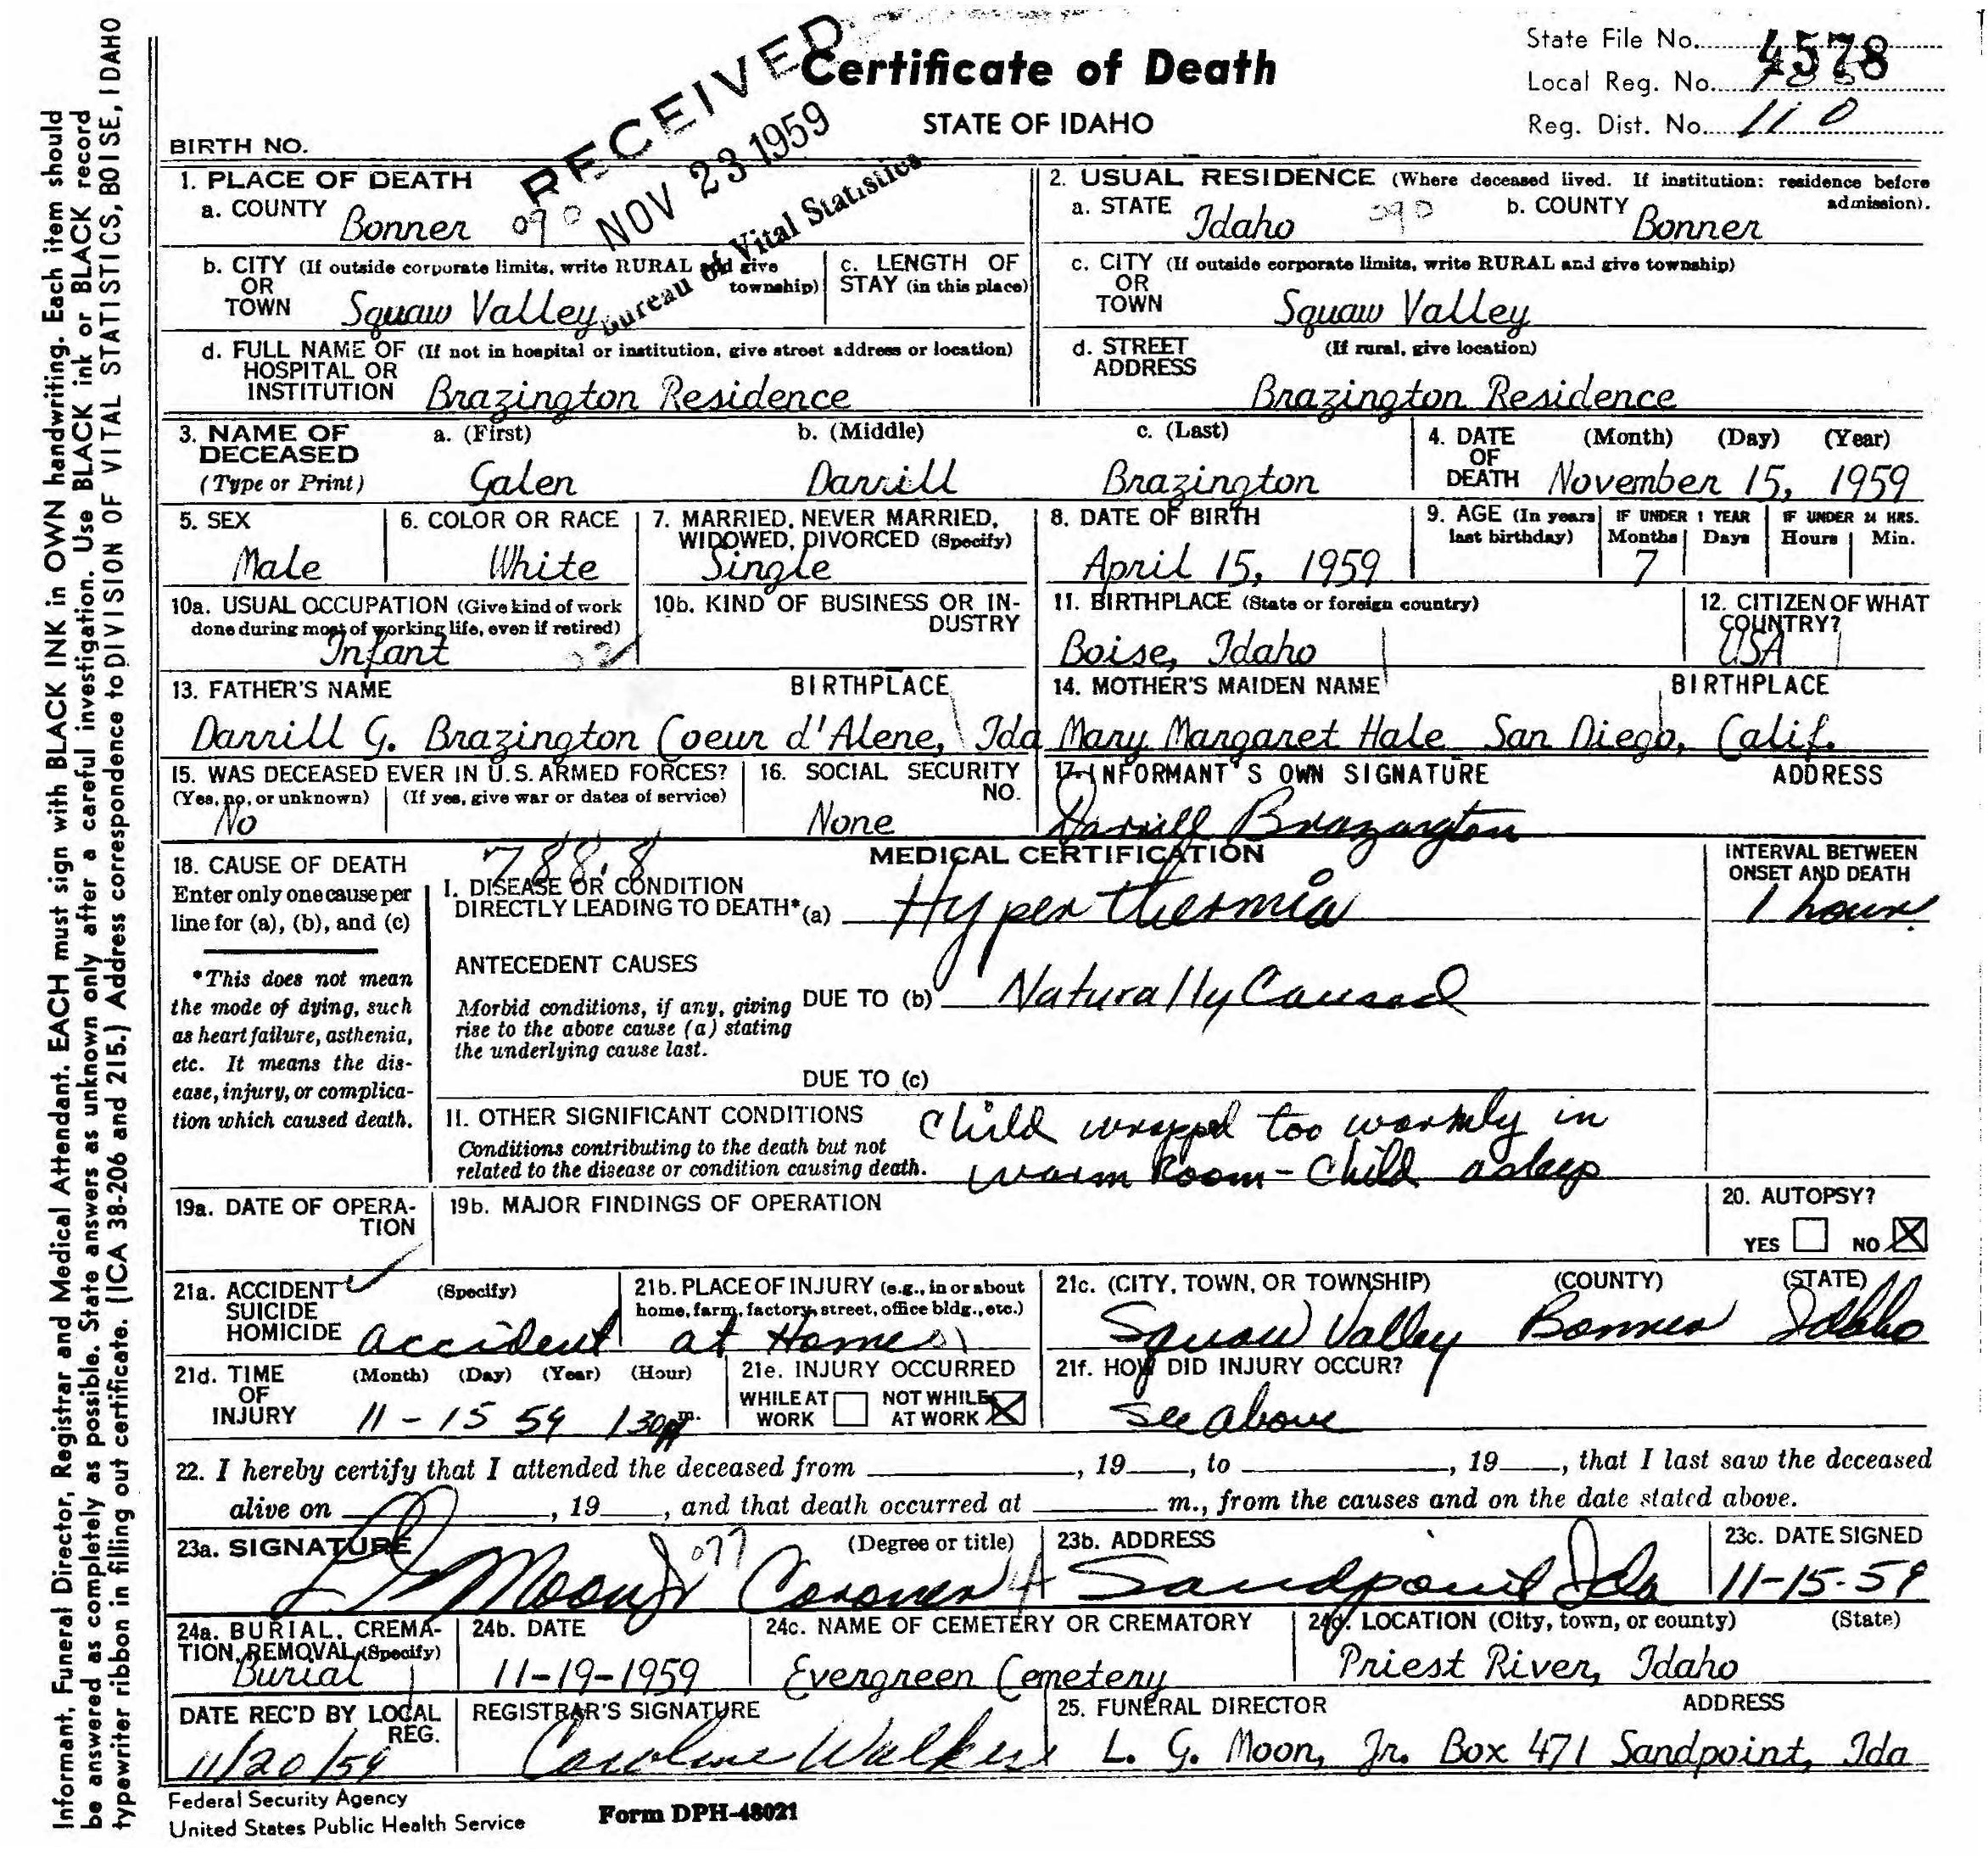 RECEIVED
NOV 23 1959
Bureau of Vital Statistics
Certificate of Death
STATE OF IDAHO
State File No. 4578
Local Reg. No.
Reg. Dist. No. 110
BIRTH NO.
1. PLACE OF DEATH
a. COUNTY Bonner 090
b. CITY (If outside corporate limits, write RURAL and give township)
OR
TOWN Squaw Valley
c. LENGTH OF
STAY (in this place)
d. FULL NAME OF (If not in hospital or institution, give street address or location)
HOSPITAL OR
INSTITUTION Brazington Residence
2. USUAL RESIDENCE (Where deceased lived. If institution: residence before admission).
a. STATE Idaho 090 b. COUNTY Bonner
c. CITY (If outside corporate limits, write RURAL and give township)
OR
TOWN Squaw Valley
d. STREET (If rural, give location)
ADDRESS
Brazington Residence
3. NAME OF DECEASED
(Type or Print)
a. (First) b. (Middle) c. (Last)
Galen Darrill Brazington
4. DATE OF DEATH (Month) (Day) (Year)
November 15, 1959
5. SEX
Male
6. COLOR OR RACE
White
7. MARRIED, NEVER MARRIED,
WIDOWED, DIVORCED (Specify)
Single
8. DATE OF BIRTH
April 15, 1959
9. AGE (In years last birthday)
IF UNDER 1 YEAR
Months Days
7
IF UNDER 24 HRS.
Hours Min.
10a. USUAL OCCUPATION (Give kind of work
done during most of working life, even if retired)
Infant
10b. KIND OF BUSINESS OR INDUSTRY
11. BIRTHPLACE (State or foreign country)
Boise, Idaho
12. CITIZEN OF WHAT
COUNTRY?
USA
13. FATHER'S NAME BIRTHPLACE
Darrill G. Brazington Coeur d'Alene, Ida
14. MOTHER'S MAIDEN NAME BIRTHPLACE
Mary Margaret Hale San Diego, Calif.
15. WAS DECEASED EVER IN U.S. ARMED FORCES?
(Yes, no, or unknown) (If yes, give war or dates of service)
No
16. SOCIAL SECURITY
NO.
None
17. INFORMANT'S OWN SIGNATURE ADDRESS
Darrill Brazington
18. CAUSE OF DEATH
Enter only one cause per
line for (a), (b), and (c)
*This does not mean
the mode of dying, such
as heart failure, asthenia,
etc. It means the dis-
ease, injury, or complica-
tion which caused death.
788.8
MEDICAL CERTIFICATION
INTERVAL BETWEEN
ONSET AND DEATH
I. DISEASE OR CONDITION
DIRECTLY LEADING TO DEATH* (a) Hyperthermia 1 hour.
ANTECEDENT CAUSES
Morbid conditions, if any, giving
rise to the above cause (a) stating
the underlying cause last.
DUE TO (b) Naturally Caused
DUE TO (c)
II. OTHER SIGNIFICANT CONDITIONS
Conditions contributing to the death but not
related to the disease or condition causing death.
Child wrapped too warmly in
warm Room - Child asleep
19a. DATE OF OPERA-
TION
19b. MAJOR FINDINGS OF OPERATION
20. AUTOPSY?
YES NO
21a. ACCIDENT (Specify)
SUICIDE
HOMICIDE accident
21b. PLACE OF INJURY (e.g., in or about
home, farm, factory, street, office bldg., etc.)
at Home
21c. (CITY, TOWN, OR TOWNSHIP) (COUNTY) (STATE)
Squaw Valley Bonner Idaho
21d. TIME OF INJURY (Month) (Day) (Year) (Hour)
11-15 59 130 p m.
21e. INJURY OCCURRED
WHILE AT WORK NOT WHILE AT WORK
21f. HOW DID INJURY OCCUR?
See above
22. I hereby certify that I attended the deceased from , 19 , to , 19 , that I last saw the deceased
alive on , 19 , and that death occurred at m., from the causes and on the date stated above.
23a. SIGNATURE (Degree or title)
Moon Jr 077 Coroner 4
23b. ADDRESS
Sandpoint Ida
23c. DATE SIGNED
11-15-59
24a. BURIAL, CREMA-
TION, REMOVAL (Specify)
Burial
24b. DATE
11-19-1959
24c. NAME OF CEMETERY OR CREMATORY
Evergreen Cemetery
24d. LOCATION (City, town, or county) (State)
Priest River, Idaho
DATE REC'D BY LOCAL
REG.
11/20/59
REGISTRAR'S SIGNATURE
Caroline Walker
25. FUNERAL DIRECTOR ADDRESS
L. G. Moon, Jr. Box 471 Sandpoint, Ida
Federal Security Agency
United States Public Health Service
Form DPH-48021
Informant, Funeral Director, Registrar and Medical Attendant. EACH must sign with BLACK INK in OWN handwriting. Each item should
be answered as completely as possible. State answers as unknown only after a careful investigation. Use BLACK ink or BLACK record
typewriter ribbon in filling out certificate. (ICA 38-206 and 215.) Address correspondence to DIVISION OF VITAL STATISTICS, BOISE, IDAHO